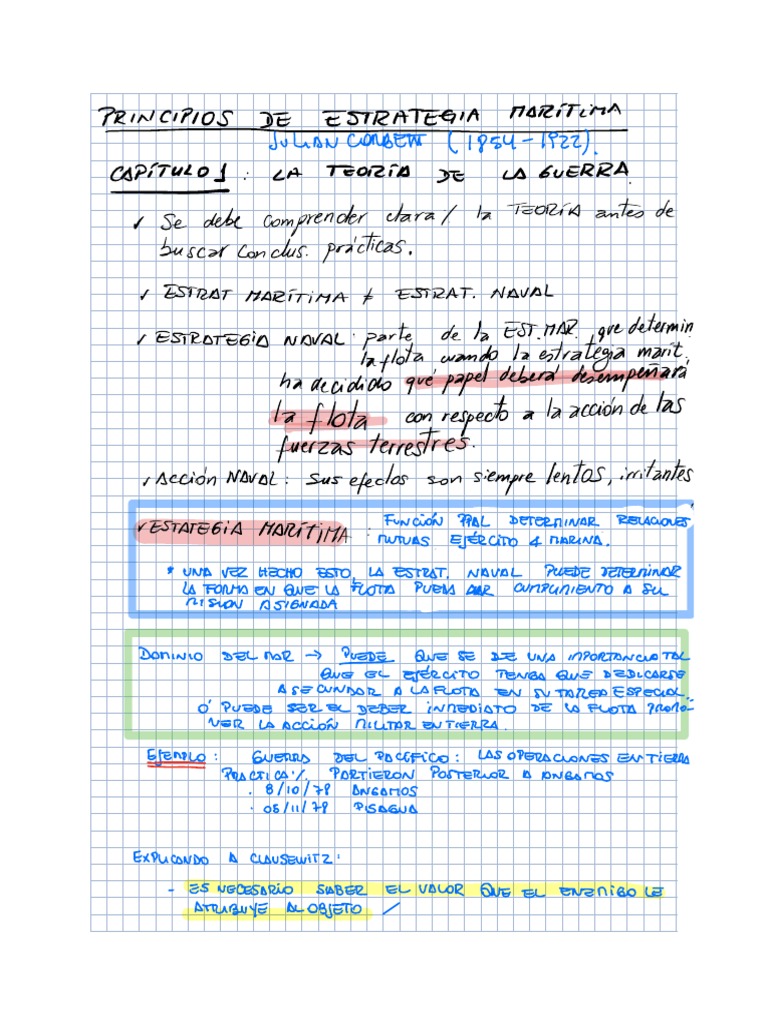 PRINCIPIOS DE ESTRATEGIA MARÍTIMA
JULIAN CORBETT (1854-1922).
CAPÍTULO 1 : LA TEORÍA DE LA GUERRA
✓ Se debe comprender clara/ la TEORÍA antes de
buscar conclus. prácticas.
✓ ESTRAT MARÍTIMA ≠ ESTRAT. NAVAL
✓ ESTRATEGIA NAVAL: parte de la EST.MAR. que determin
la flota cuando la estrategia marit.
ha decidido qué papel deberá desempeñará
la flota con respecto a la acción de las
fuerzas terrestres.
✓ Acción NAVAL: Sus efectos son siempre lentos, irritantes
✓ ESTATEGIA MARÍTIMA : FUNCIÓN PPAL DETERMINAR RELACIONES
MUTUAS EJÉRCITO Y MARINA.
* UNA VEZ HECHO ESTO, LA ESTRAT. NAVAL PUEDE DETERMINAR
LA FORMA EN QUE LA FLOTA PUEDA DAR CUMPLIMIENTO A SU
MISION ASIGNADA
DOMINIO DEL MAR → PUEDE QUE SE DE UNA IMPORTANCIA TAL
QUE EL EJÉRCITO TENGA QUE DEDICARSE
A SECUNDAR A LA FLOTA EN SU TAREA ESPECIAL.
Ó PUEDE SER EL DEBER INMEDIATO DE LA FLOTA PROMO-
VER LA ACCIÓN MILITAR EN TIERRA.
EJEMPLO : GUERRA DEL PACÍFICO: LAS OPERACIONES EN TIERRA
PRACTICA/. PARTIERON POSTERIOR A ANGAMOS
. 8/10/79 ANGAMOS
. 05/11/79 PISAGUA
EXPLICANDO A CLAUSEWITZ:
- ES NECESARIO SABER EL VALOR QUE EL ENEMIGO LE
ATRIBUYE AL OBJETO /